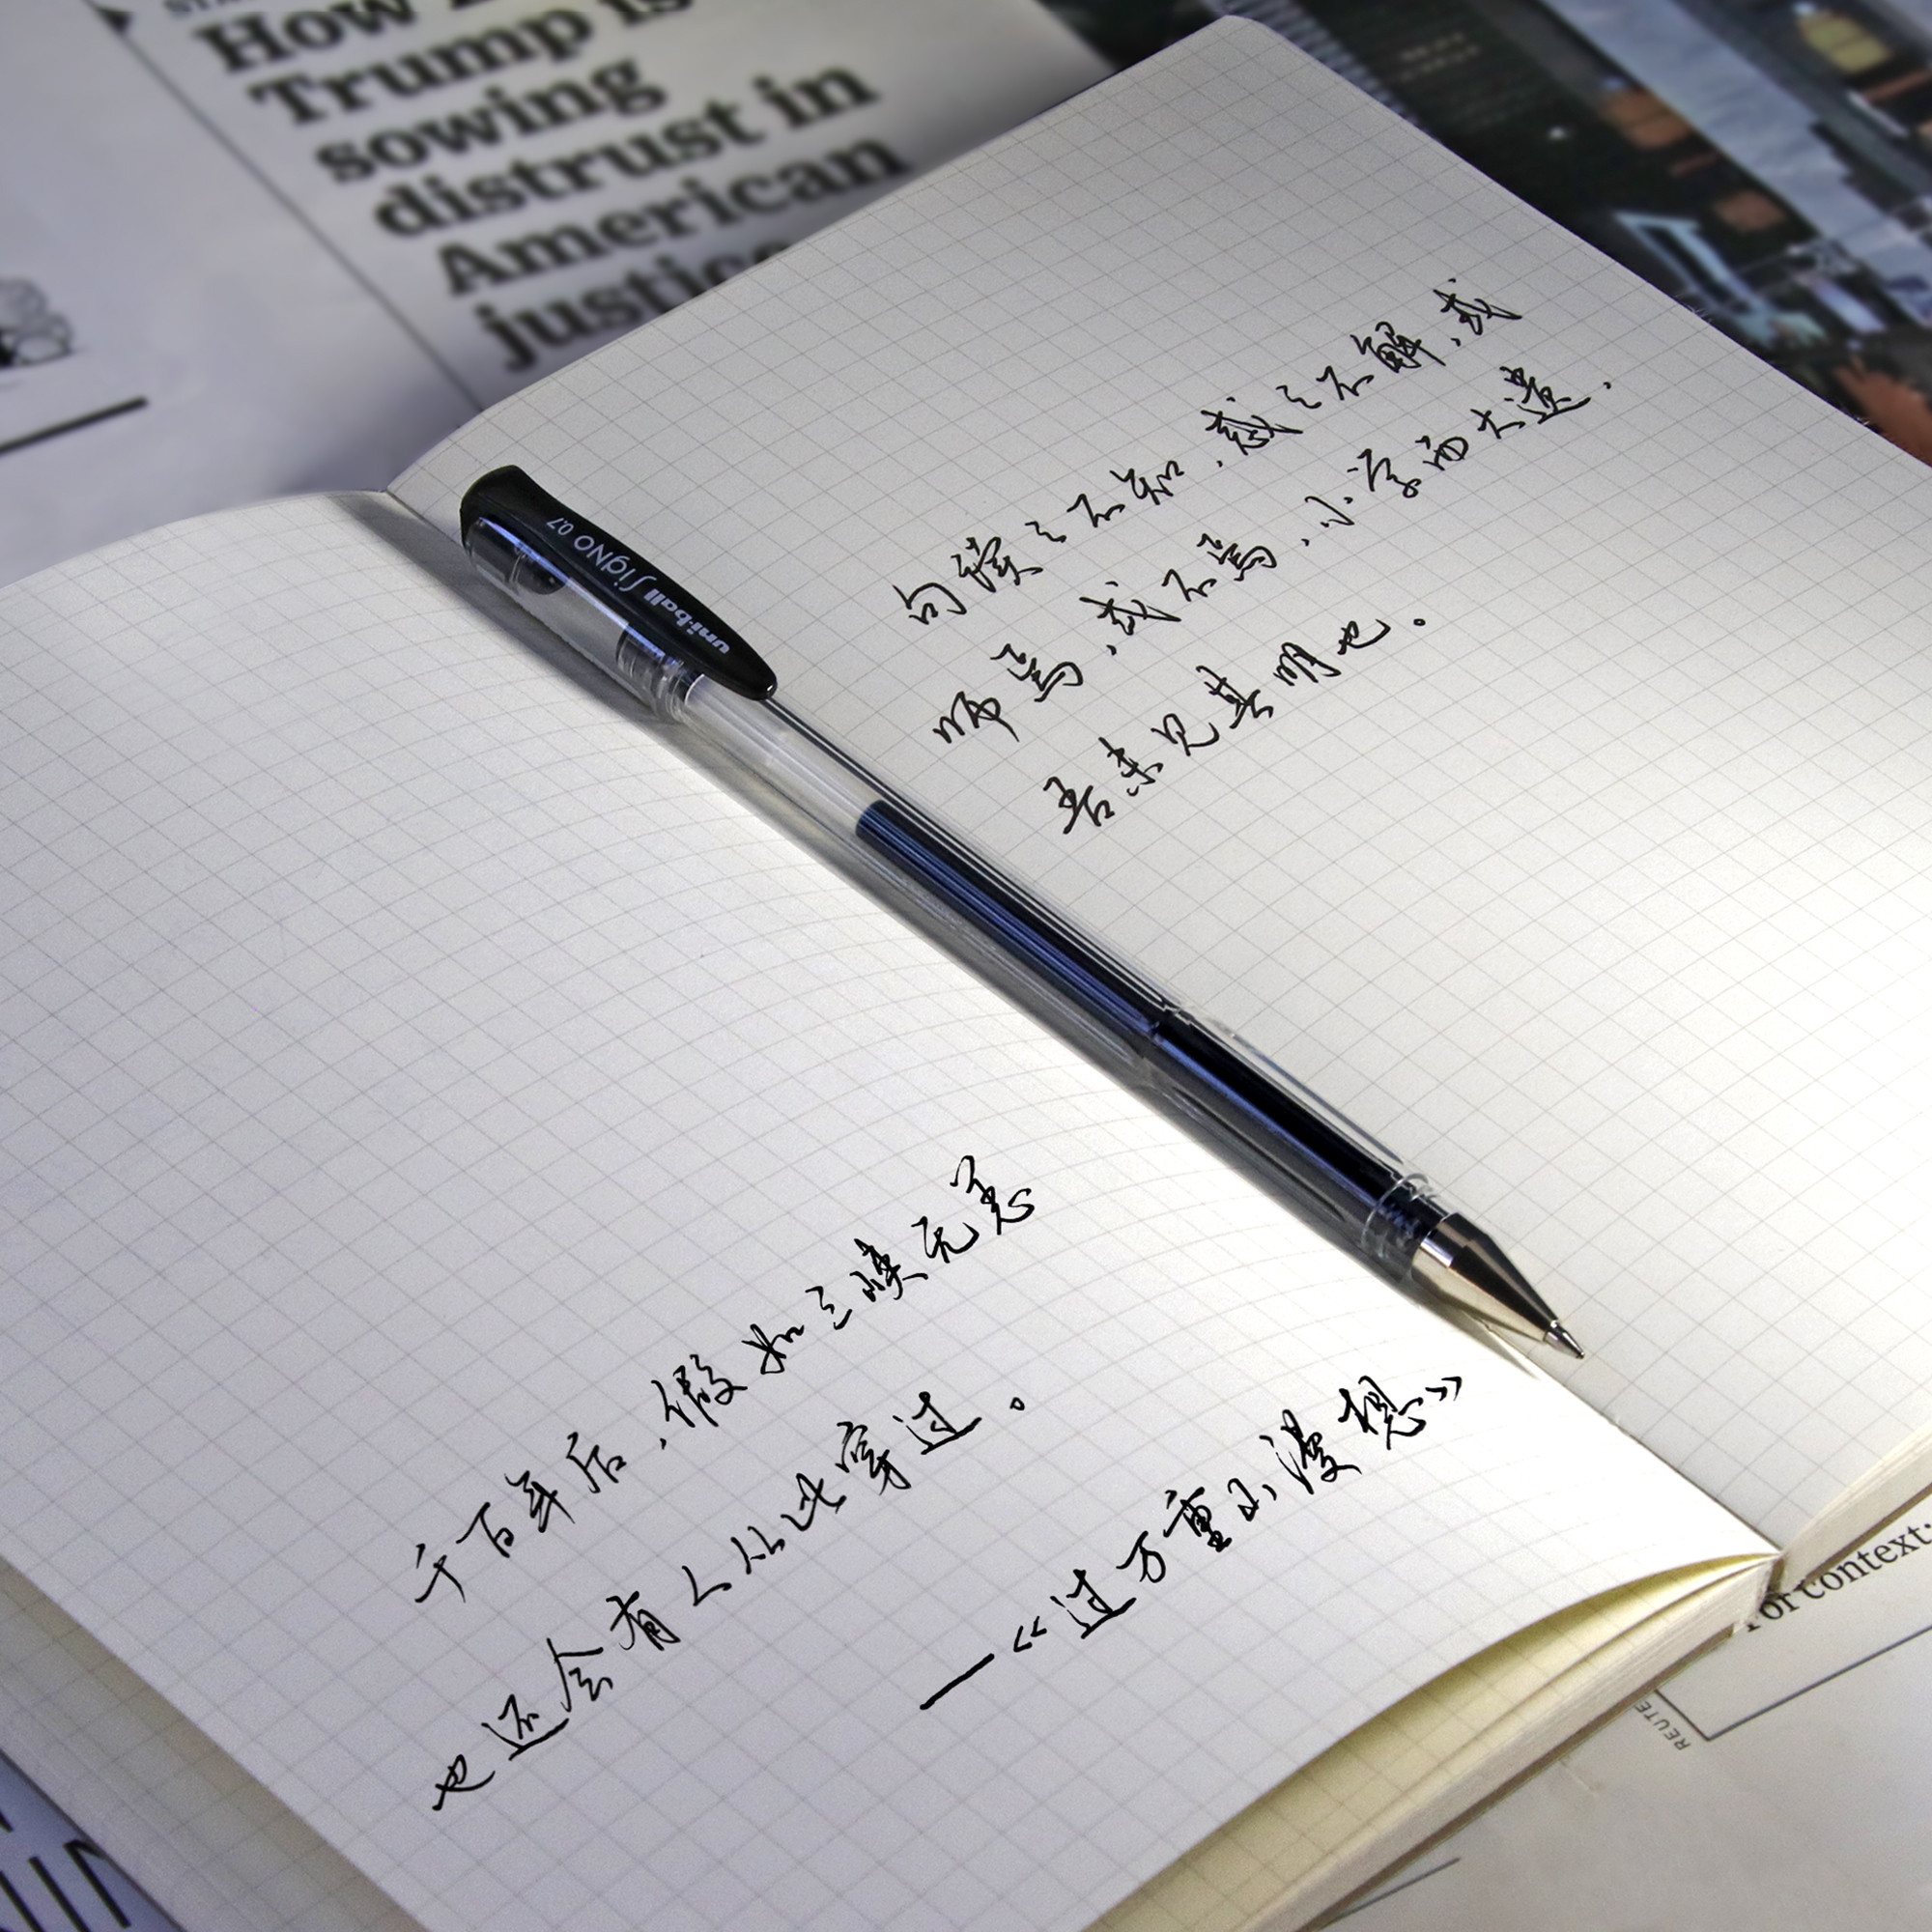 How
Trump is
sowing
distrust in
American
justice
uni-ball Signo 0.7
句读之不知，惑之不解，或
师焉，或不焉，小学而大遗，
吾未见其明也。
千百年后，假如三峡无恙
也还会有人从此穿过。
—《过万重山漫想》
For context:
REUTE